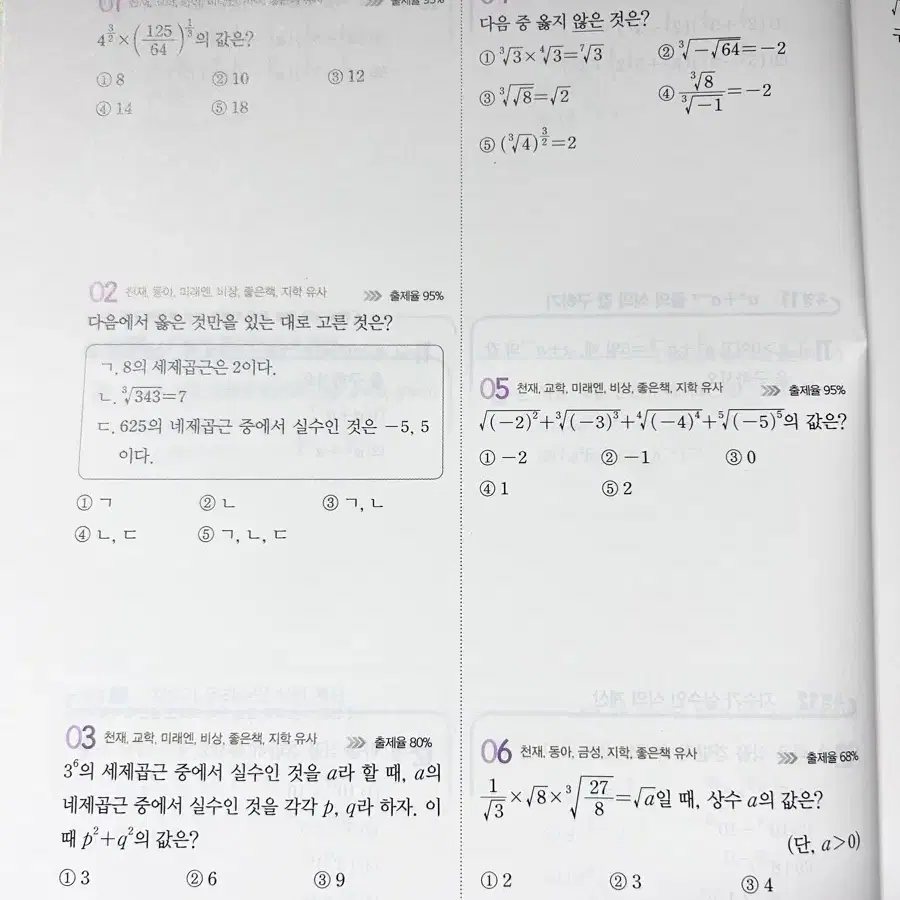 01 출제율 95%
4^{3/2}×(125/64)^{1/3}의 값은?
① 8 ② 10 ③ 12
④ 14 ⑤ 18
02 천재, 동아, 미래엔, 비상, 좋은책, 지학 유사 >>> 출제율 95%
다음에서 옳은 것만을 있는 대로 고른 것은?
ㄱ. 8의 세제곱근은 2이다.
ㄴ. ∛343=7
ㄷ. 625의 네제곱근 중에서 실수인 것은 -5, 5
이다.
① ㄱ ② ㄴ ③ ㄱ, ㄴ
④ ㄴ, ㄷ ⑤ ㄱ, ㄴ, ㄷ
03 천재, 교학, 미래엔, 비상, 좋은책, 지학 유사 >>> 출제율 80%
3⁶의 세제곱근 중에서 실수인 것을 a라 할 때, a의
네제곱근 중에서 실수인 것을 각각 p, q라 하자. 이
때 p²+q²의 값은?
① 3 ② 6 ③ 9
다음 중 옳지 않은 것은?
① ∛3×∜3=⁷√3 ② ∛(-√64)=-2
③ ∛√8=√2 ④ ∛8/∛-1=-2
⑤ (∛4)^{3/2}=2
05 천재, 교학, 미래엔, 비상, 좋은책, 지학 유사 >>> 출제율 95%
√(-2)²+∛(-3)³+∜(-4)⁴+⁵√(-5)⁵의 값은?
① -2 ② -1 ③ 0
④ 1 ⑤ 2
06 천재, 동아, 금성, 지학, 좋은책 유사 >>> 출제율 68%
1/√3×√8×∛(27/8)=√a일 때, 상수 a의 값은?
(단, a>0)
① 2 ② 3 ③ 4